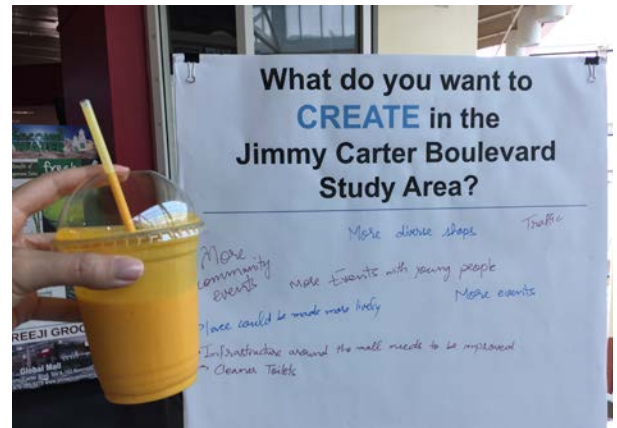 What do you want to
CREATE in the
Jimmy Carter Boulevard
Study Area?
More diverse shops
Traffic
More
community
events
More Events with young people
More events
Place could be made more lively
Infrastructure around the mall needs to be improved
Cleaner Toilets
fresh
REEJI GROC
Global Mall